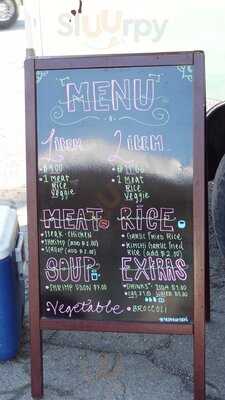 Sluurpy
MENU
1 Item
2 Item
$9.00
• 1 Meat
Rice
Veggie
• 2 Meat
Rice
Veggie
MEAT
• Steak • Chicken
• Shrimp (add $2.00)
RICE
• Garlic Fried Rice
• Kimchi Garlic Fried
Rice (add $2.00)
SOUP
• Shrimp Udon $7.00
EXTRAS
• Drinks: Soda $1.00
Vegetable
• BROCCOLI